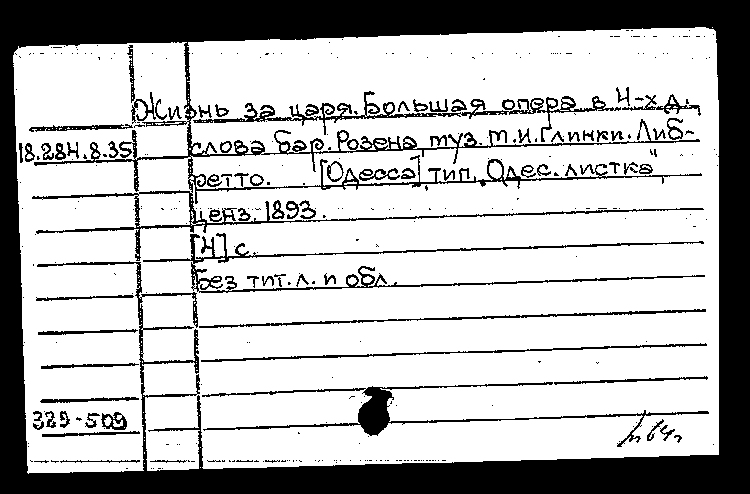 Жизнь за царя. Большая опера в 4-х д.,
18.284.8.35 слова бар. Розена, муз. М.И. Глинки. Либ-
ретто. [Одесса], тип. „Одес. листка",
ценз. 1893.
[4] с.
Без тит. л. и обл.
329-509